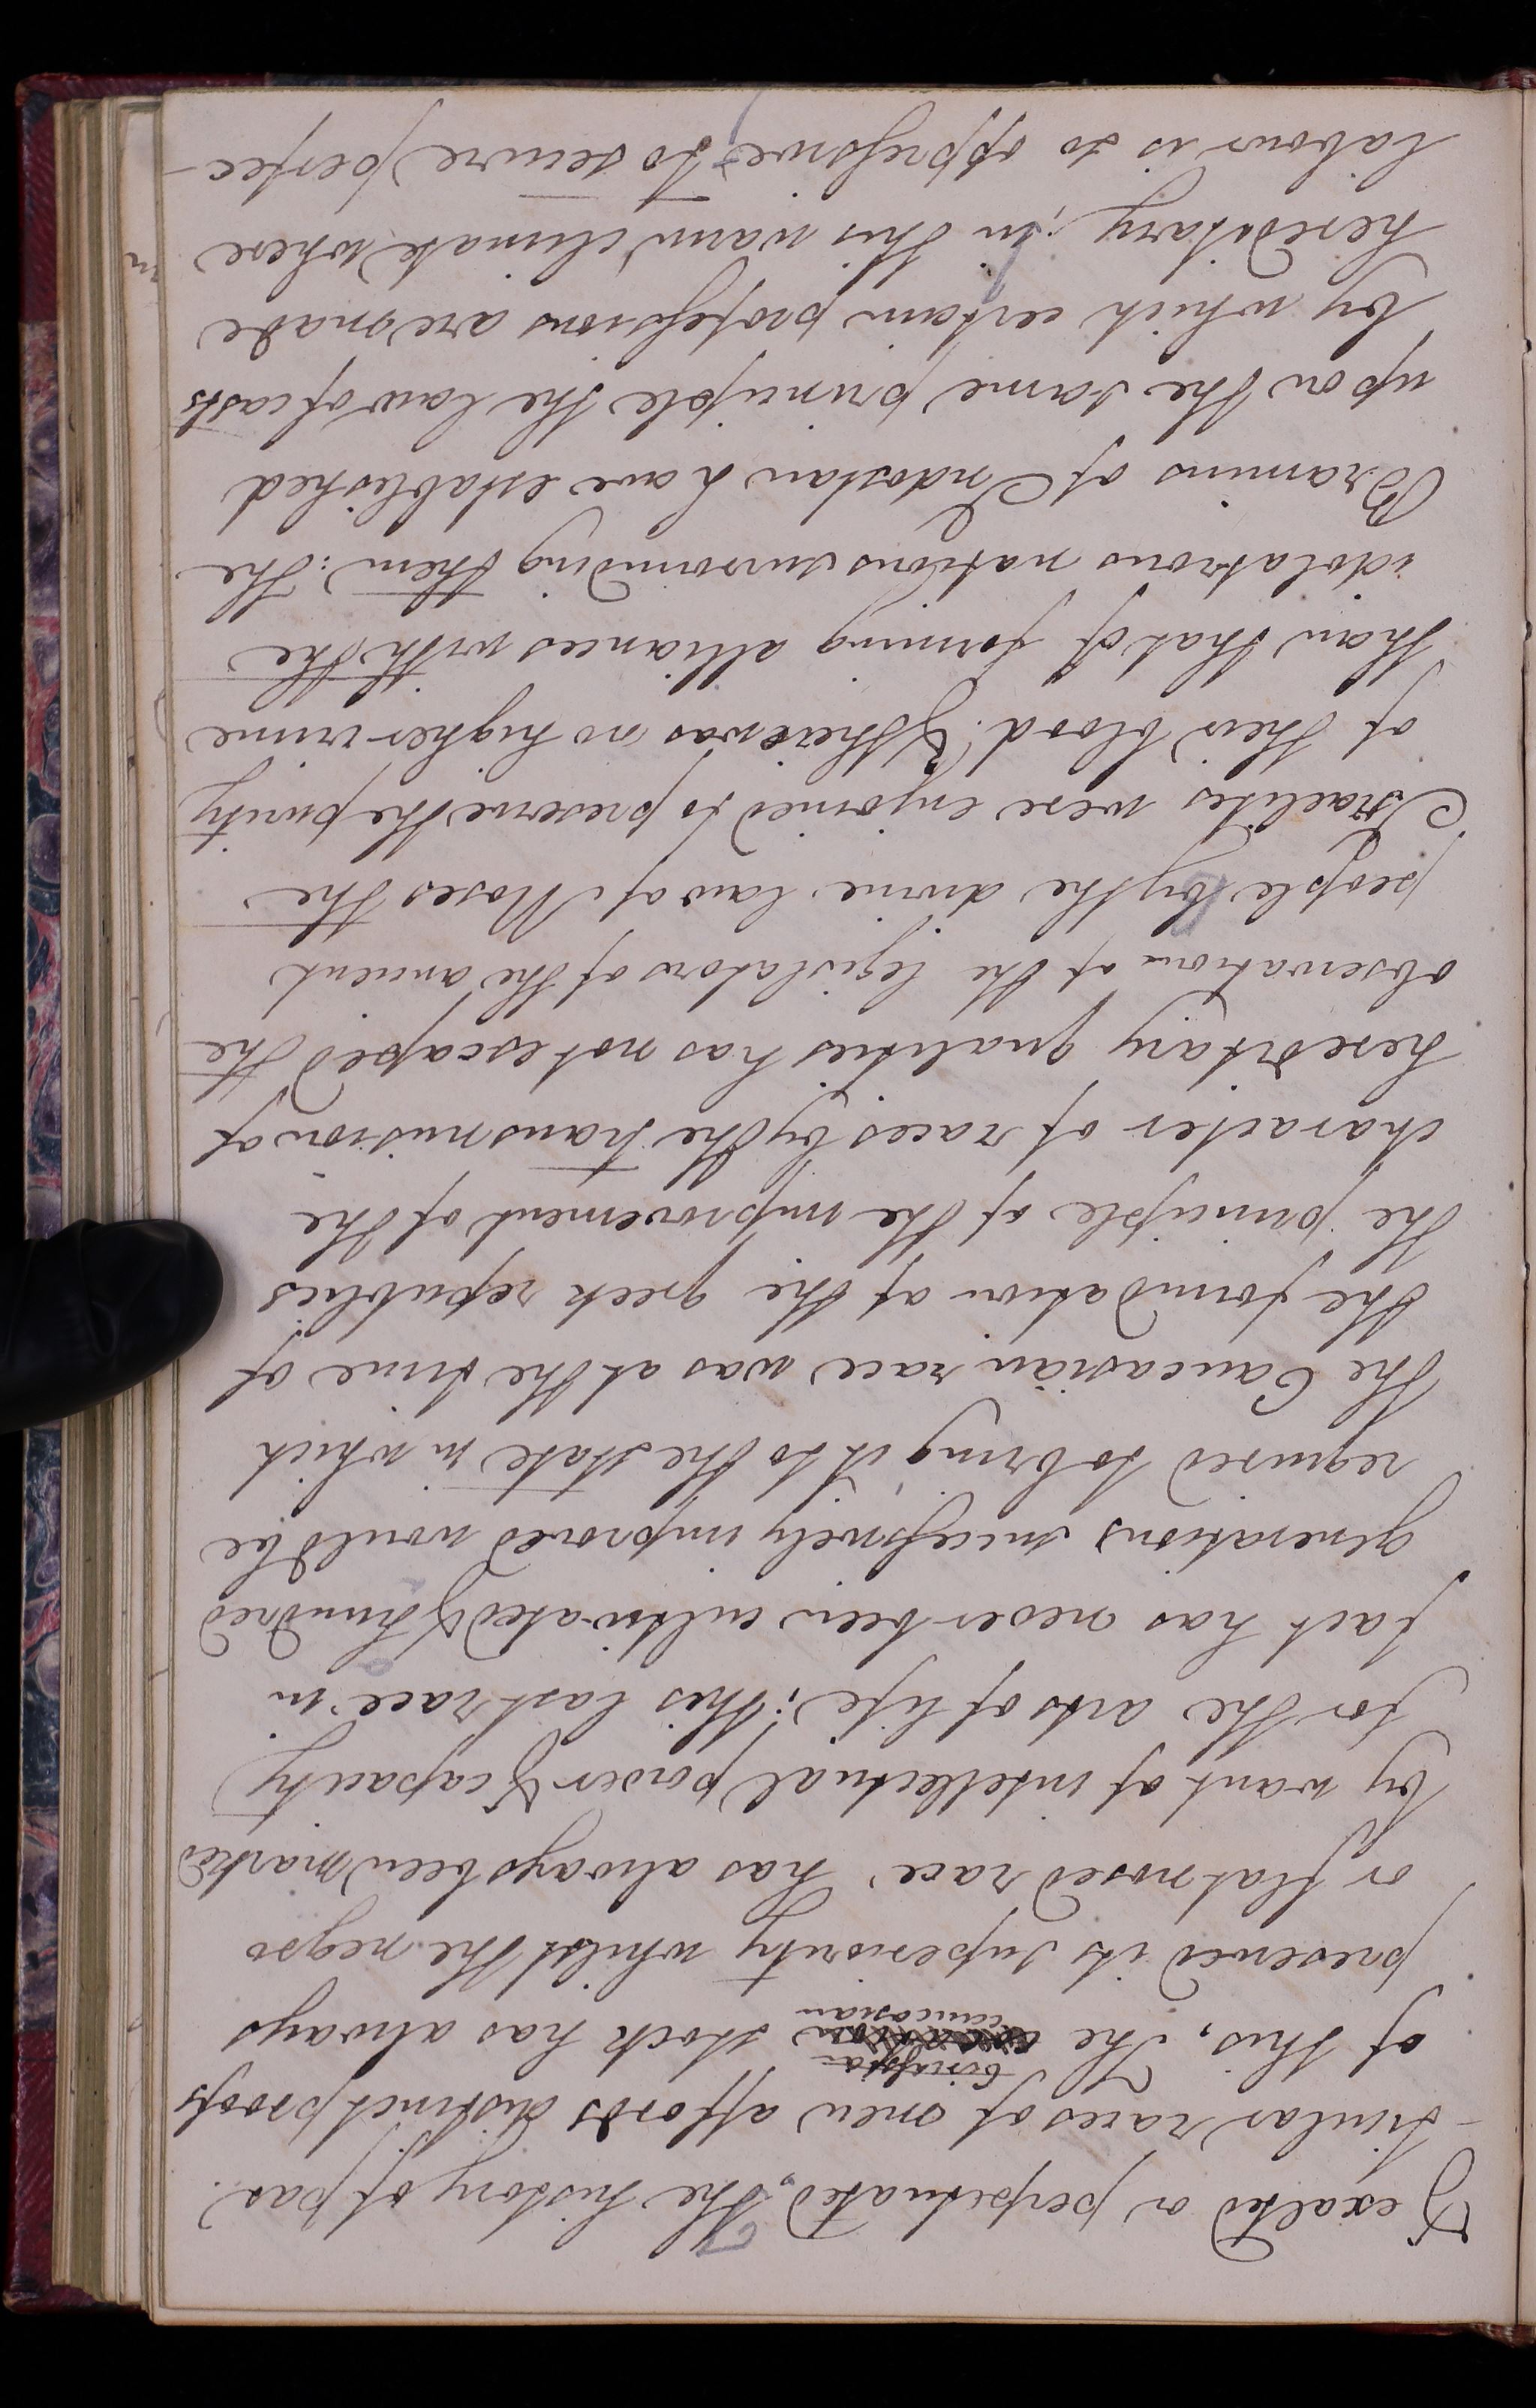 & exalted or perpetuated, The history of par
-ticular races of men affords distinct proofs
of this, the caucasian stock has always
preserved its superiority whilst the negro
or flat nosed race has always been marked
by want of intellectual power & capacity
for the arts of life; this last race in
fact has never been cultivated & hundred
generations successively improved would be
required to bring it to the state in which
the Caucasian race was at the time of
the foundation of the greek republics
the principle of the improvement of the
character of races by the transmission of
hereditary qualities has not escaped the
observation of the legislators of the ancient
people by the divine law of Moses the
Israelites were enjoined to preserve the purity
of their blood & there was no higher crime
than that of forming alliances with the
idolatrous nations surrounding them: the
Bramins of Indostan have established
upon the same principle the law of casts
by which certain professions are made
hereditary; in this warm climate where
labour is so oppressive to secure perfec-